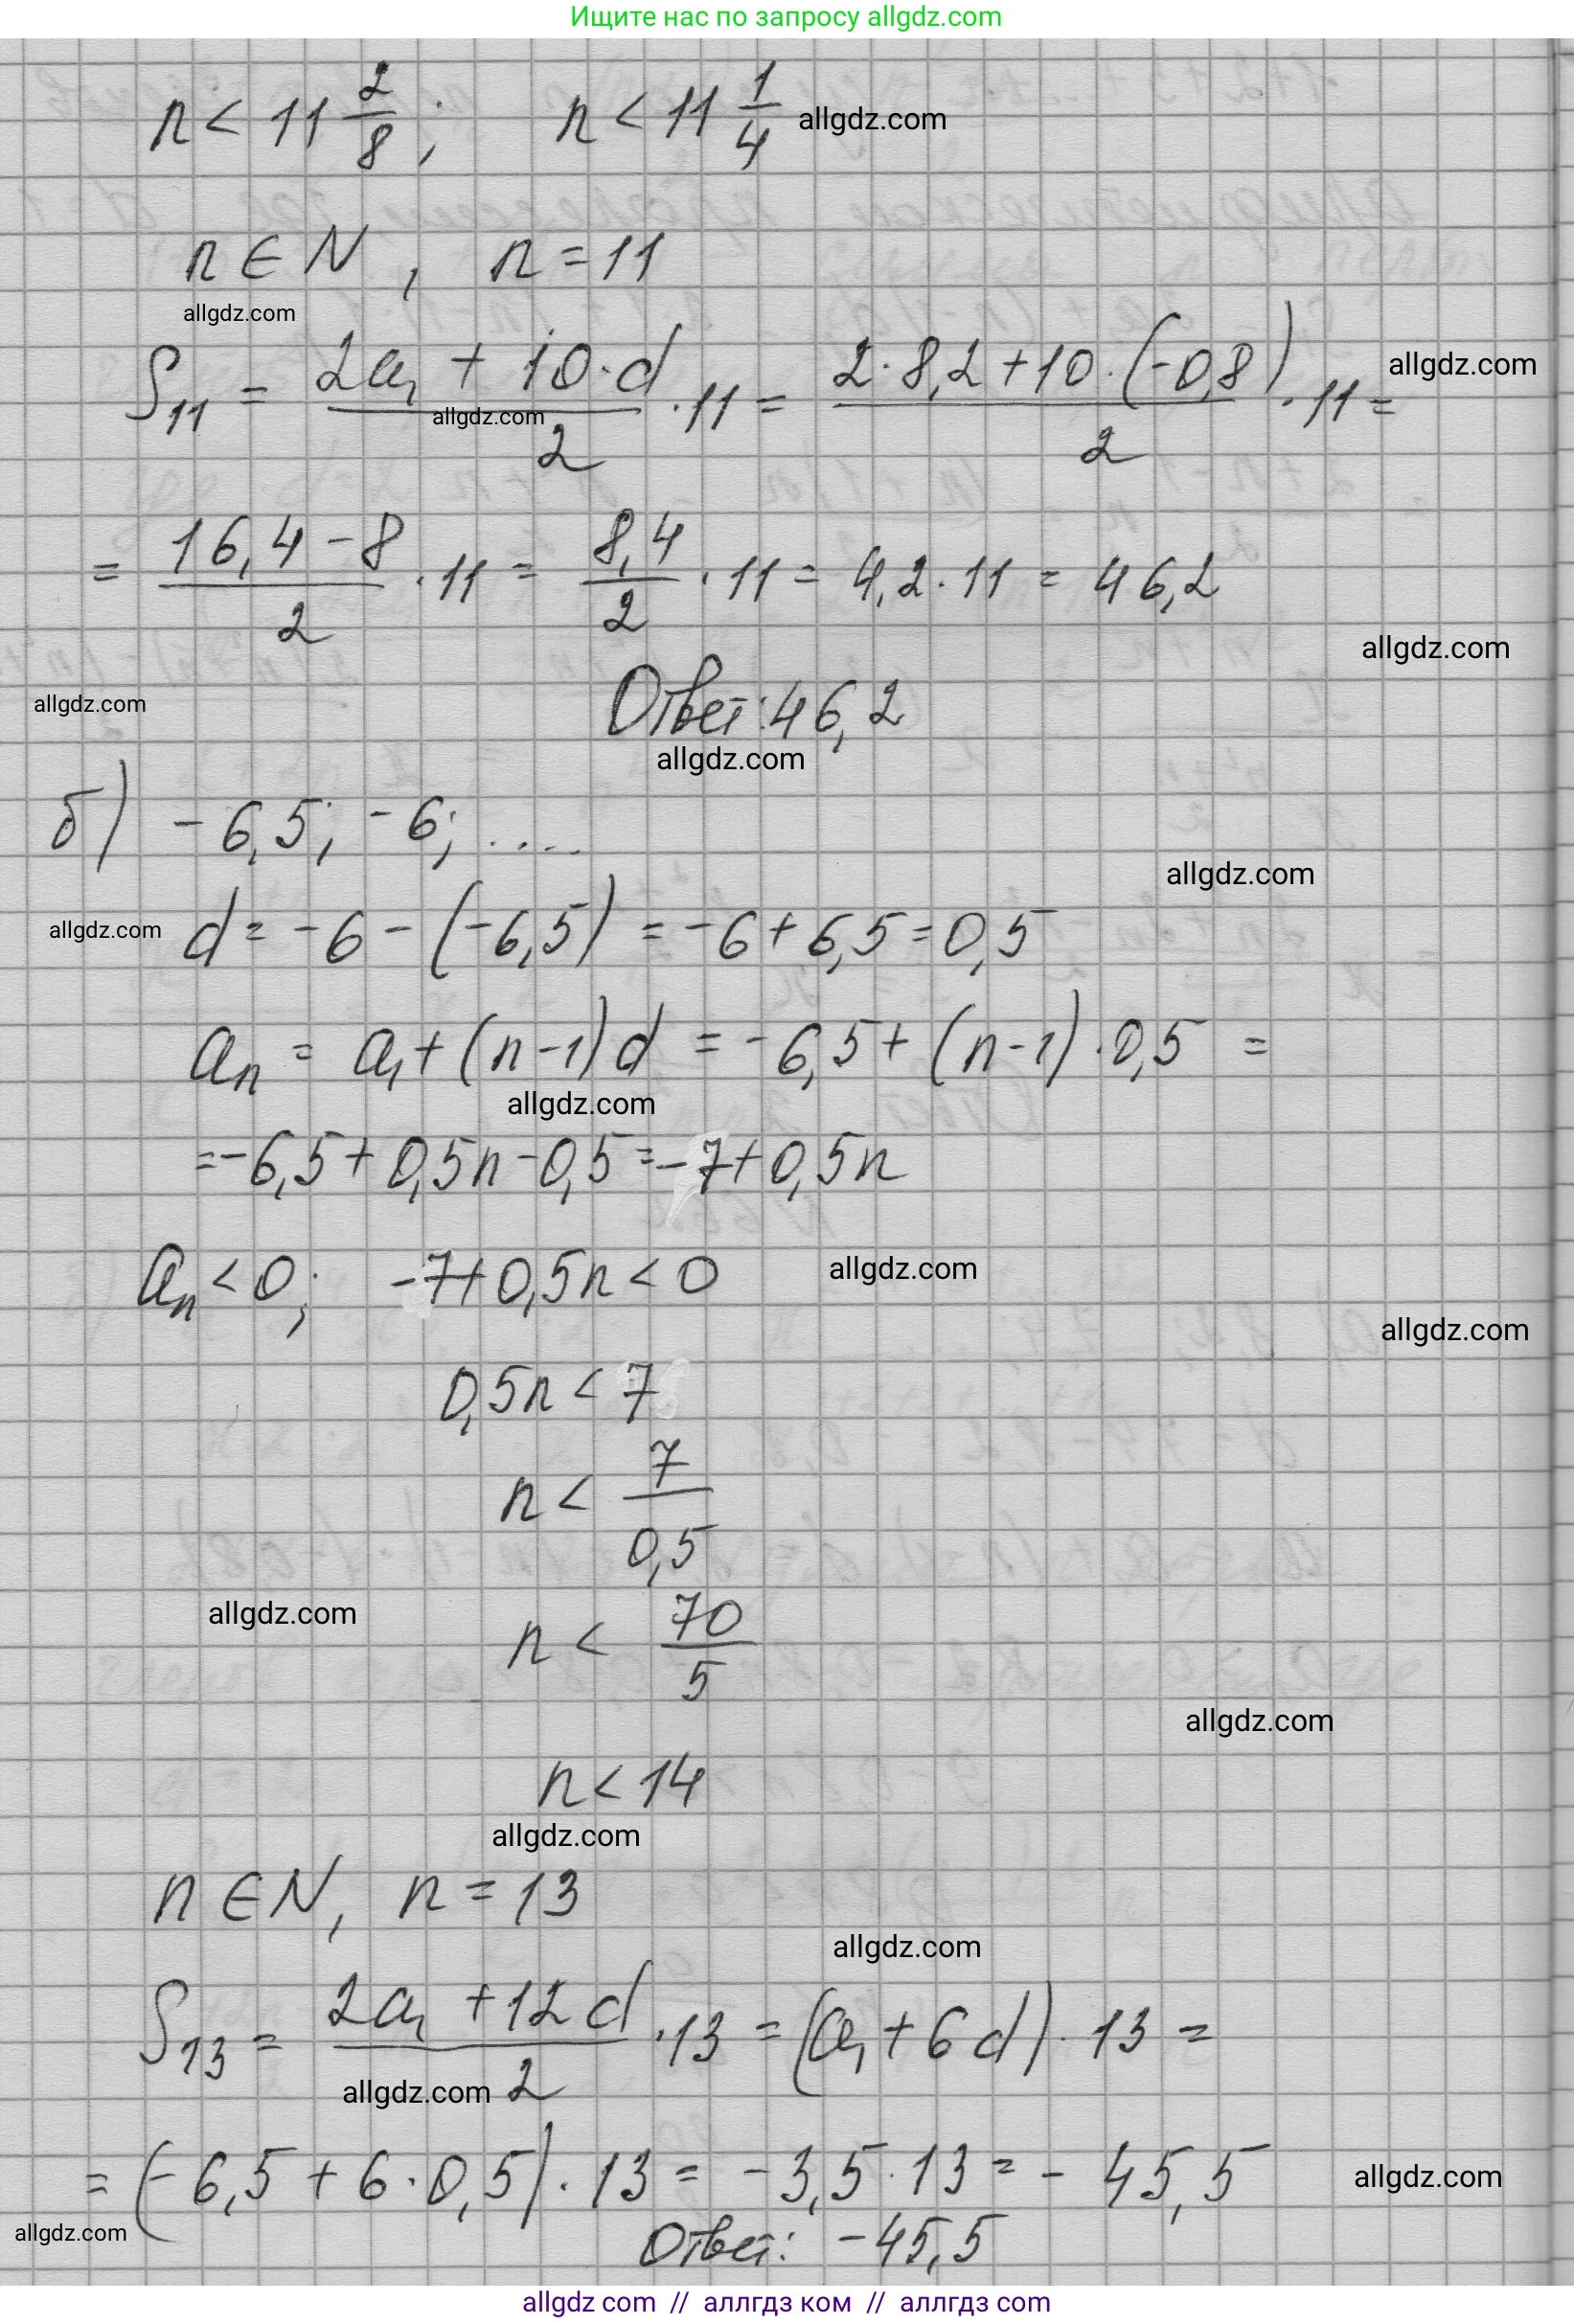 Ищите нас по запросу allgdz.com
n < 11 2/8 ; n < 11 1/4 allgdz.com
allgdz.com
n ∈ N , n = 11
allgdz.com
S₁₁ = (2a₁ + 10·d)/2 · 11 = (2·8,2 + 10·(-0,8))/2 · 11 =
allgdz.com
allgdz.com
= (16,4 - 8)/2 · 11 = 8,4/2 · 11 = 4,2 · 11 = 46,2
allgdz.com
allgdz.com
Ответ: 46,2
allgdz.com
б) -6,5; -6; ....
allgdz.com
allgdz.com
d = -6 - (-6,5) = -6 + 6,5 = 0,5
aₙ = a₁ + (n-1)d = -6,5 + (n-1)·0,5 =
allgdz.com
= -6,5 + 0,5n - 0,5 = -7 + 0,5n
aₙ < 0; -7 + 0,5n < 0 allgdz.com
allgdz.com
0,5n < 7
n < 7/0,5
allgdz.com
n < 70/5
allgdz.com
n < 14
allgdz.com
n ∈ N, n = 13
allgdz.com
S₁₃ = (2a₁ + 12d)/2 · 13 = (a₁ + 6d) · 13 =
allgdz.com
= (-6,5 + 6·0,5) · 13 = -3,5 · 13 = -45,5
allgdz.com
allgdz.com
Ответ: -45,5
allgdz com // аллгдз ком // аллгдз com